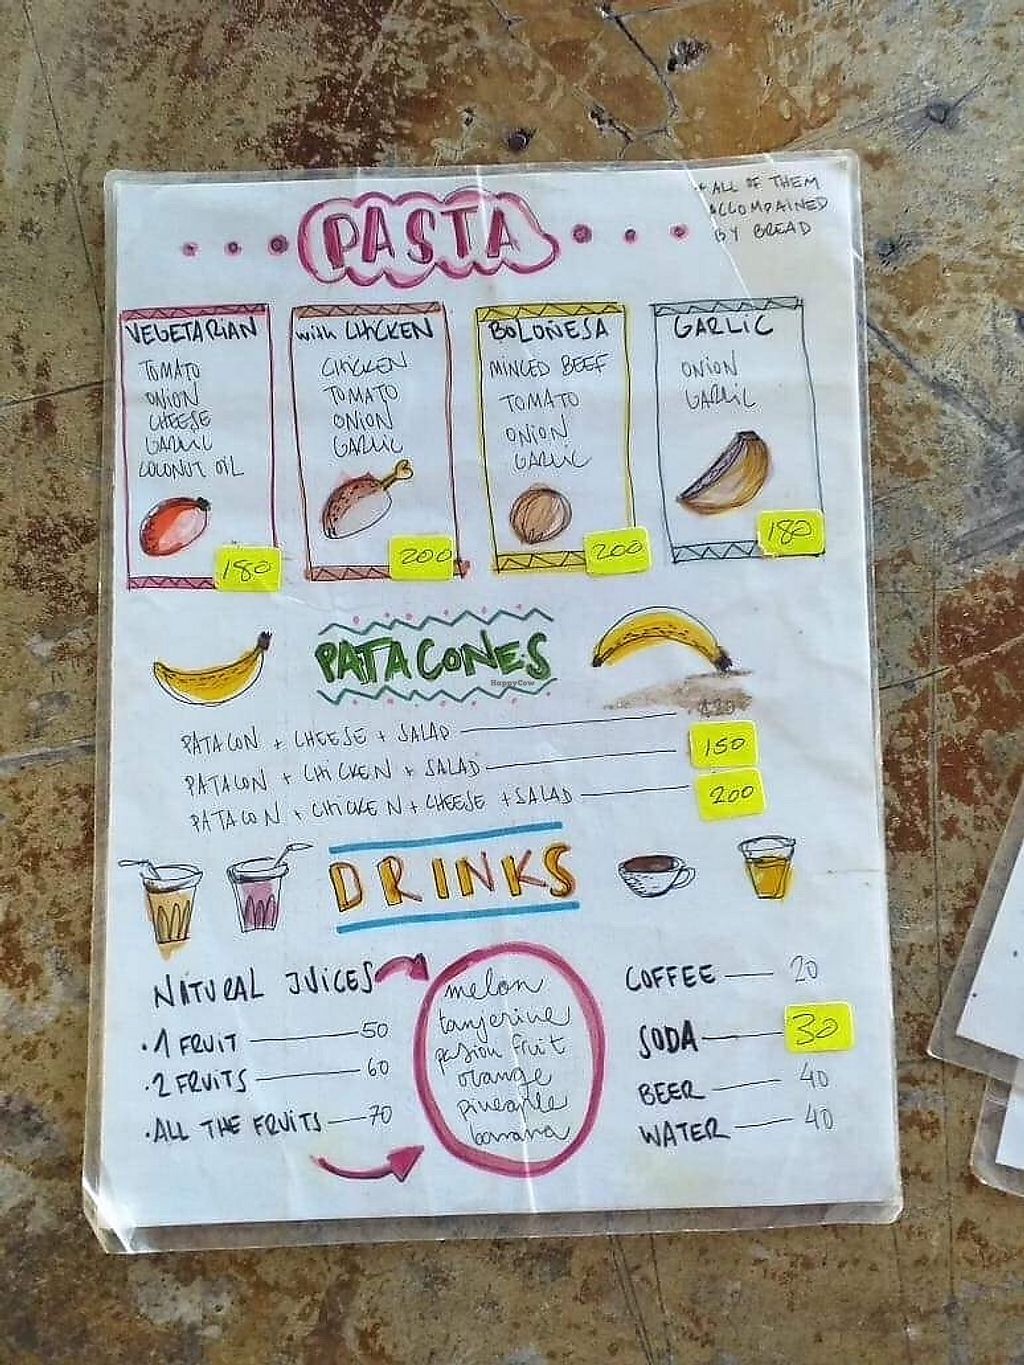 PASTA
* ALL OF THEM
ACCOMPAINED
BY BREAD
VEGETARIAN
TOMATO
ONION
CHEESE
GARLIC
COCONUT OIL
180
with CHICKEN
CHICKEN
TOMATO
ONION
GARLIC
200
BOLOÑESA
MINCED BEEF
TOMATO
ONION
GARLIC
200
GARLIC
ONION
GARLIC
180
PATACONES
HappyCow
PATACON + CHEESE + SALAD
PATACON + CHICKEN + SALAD 150
PATACON + CHICKEN + CHEESE + SALAD 200
DRINKS
NATURAL JUICES
• 1 FRUIT 50
• 2 FRUITS 60
• ALL THE FRUITS 70
melon
tanjerine
pasion fruit
orange
pineaple
banana
COFFEE 20
SODA 30
BEER 40
WATER 40